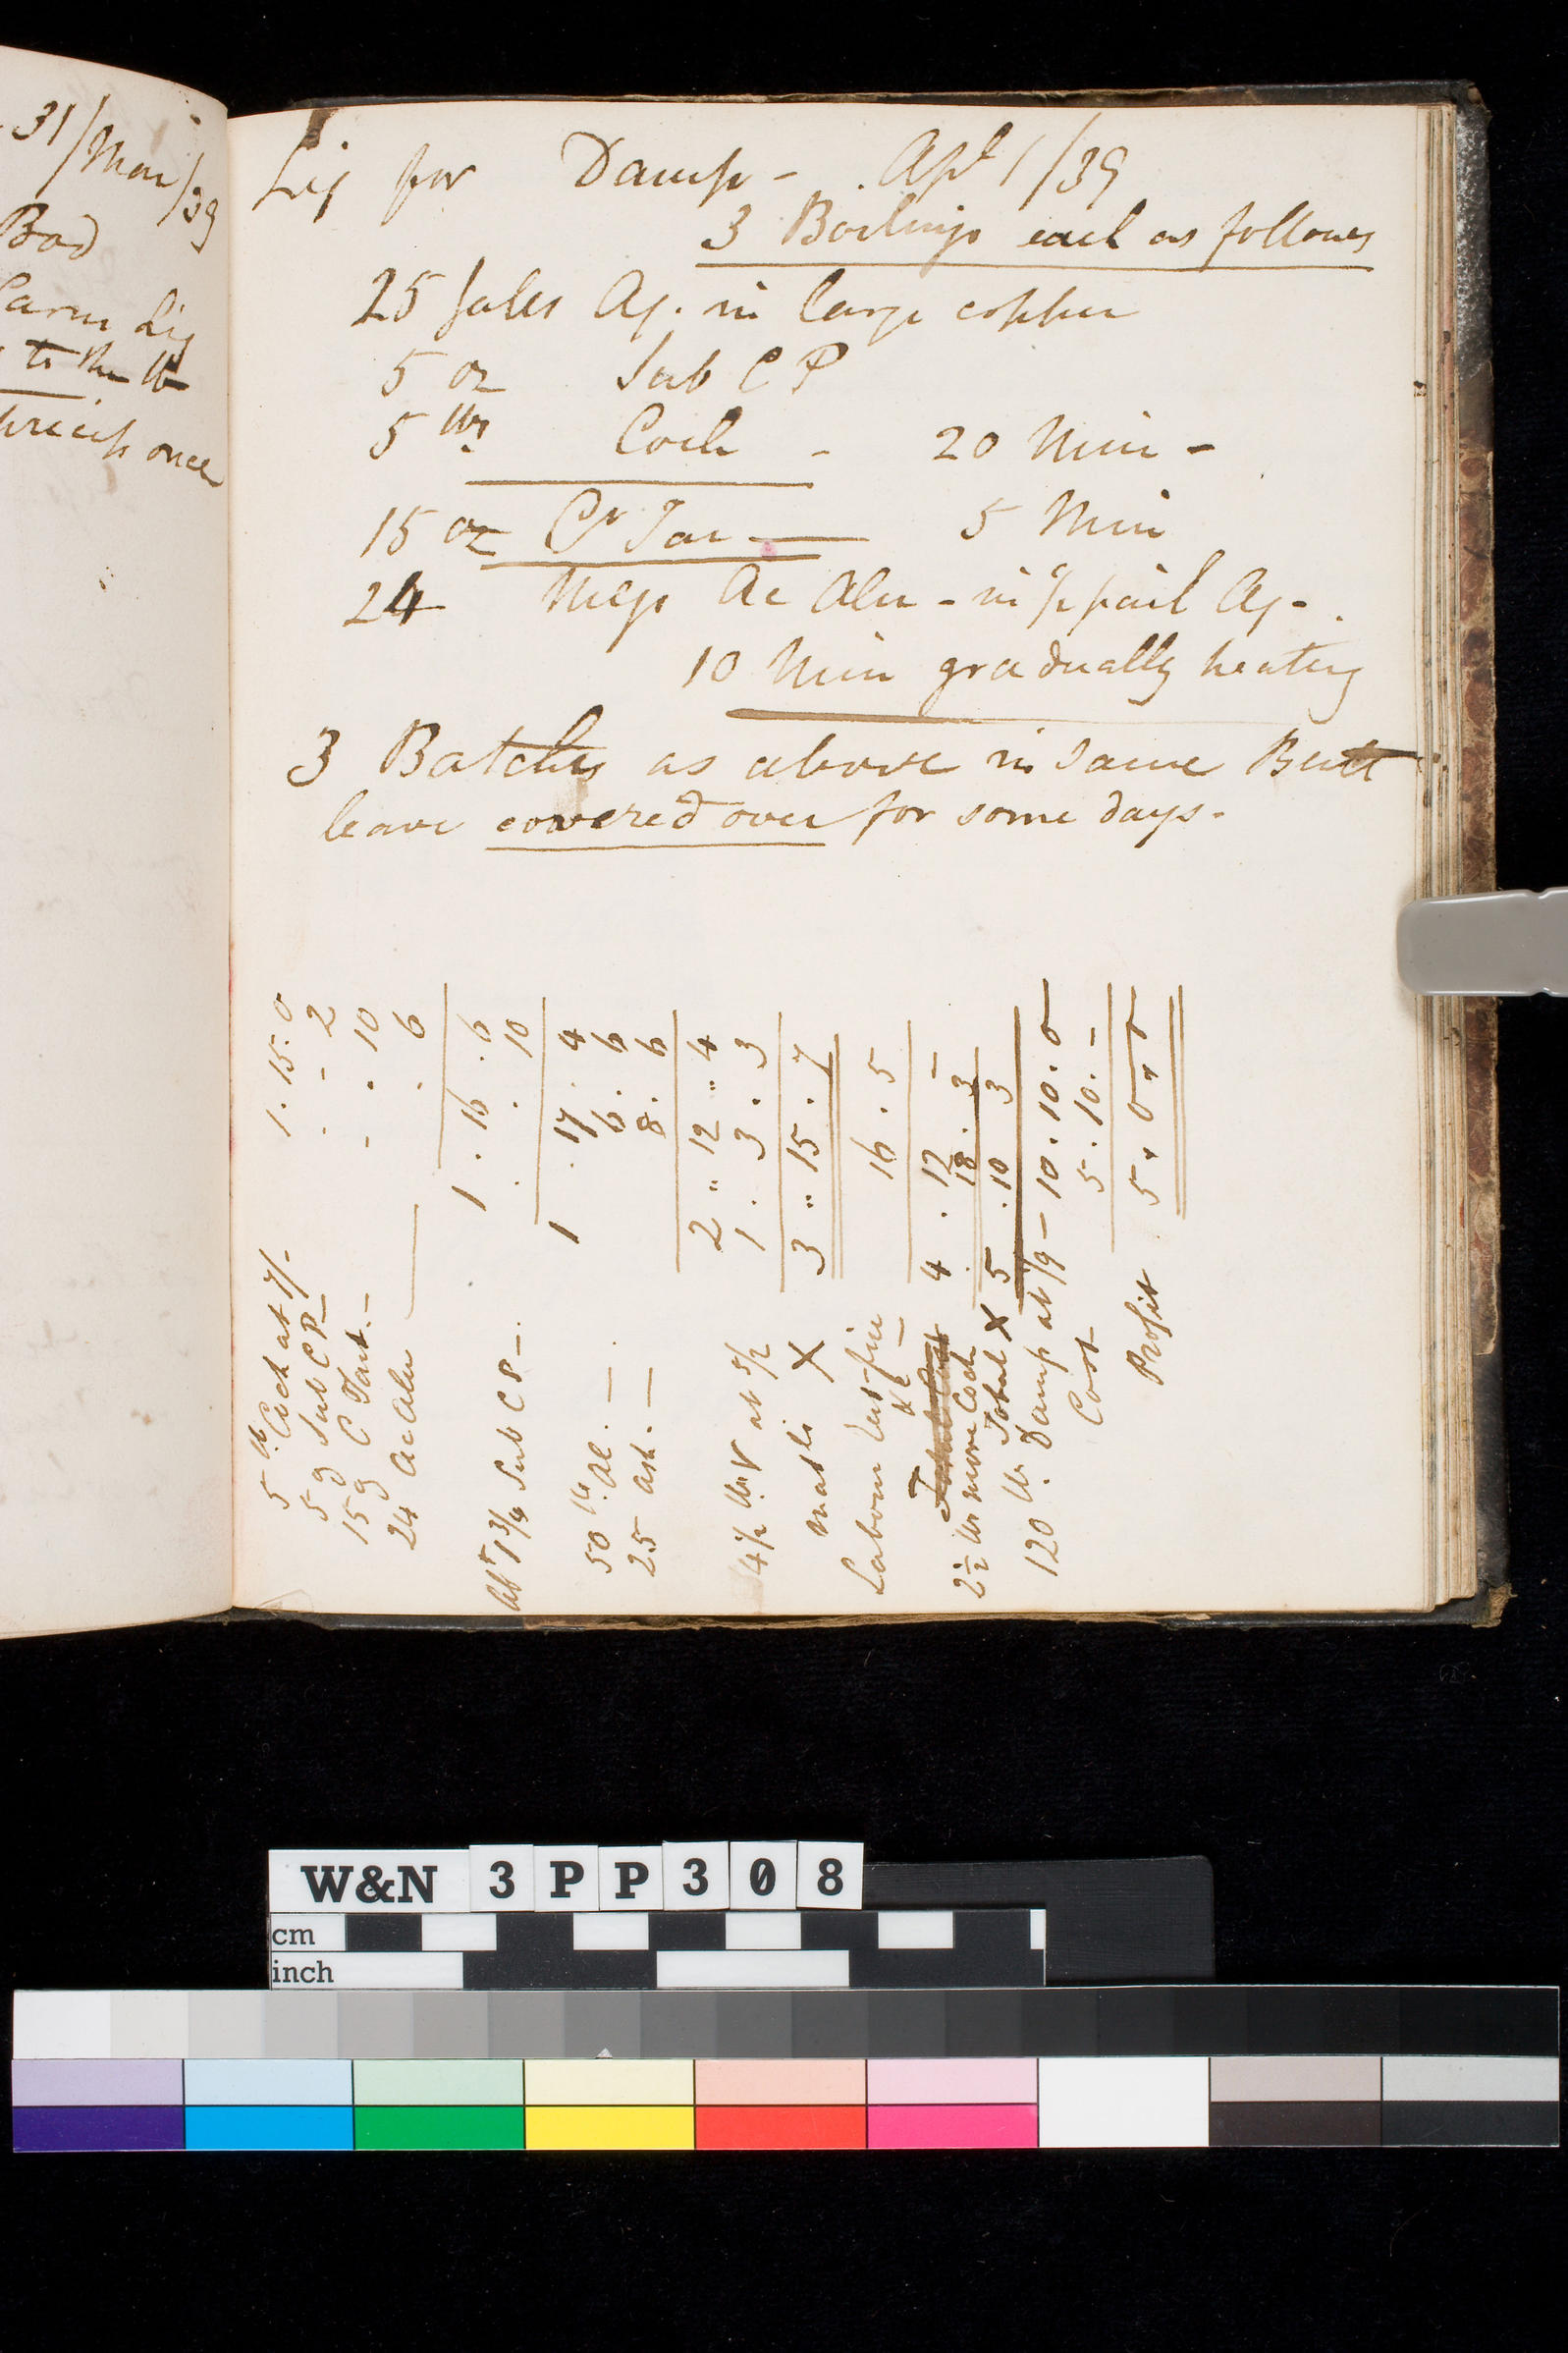 31/Mar/39
Bad
Carm Liq
to the lb
precip once
Liq for Damp - Apl 1/39
3 Boilings each as follows
25 Gales Aq. in large copper
5 oz Sub C P
5 lbs Coch - 20 Min -
15 oz Cr Tar — 5 Min
24 Megs Ac Alu - in ½ pail Aq -
10 Min gradually heating
3 Batches as above in same Butt
leave covered over for some days.
5 lb. Coch at 7/- 1.15.0
5 ʒ Sub C P - . - 2
15 ʒ C Tart - - . 10
24 Ac Alu . 6
1 . 16 . 6
Abt 1 3/4 Sub C P - . . 10
1 . 17 . 4
50 lb. Al. — 6 . 6
25 Ash. — 8 . 6
2 " 12 " 4
4½ lbs V at 5/2 1 . 3 . 3
Matls X 3 " 15 . 7
Labour Est-fire &c — 16 . 5
4 . 12 -
2½ lbs more Coch . 18 . 3
Total X 5 . 10 3
120 lb. Damp at 1/9 - 10 . 10 . 0
Cost 5 . 10 . -
Profit 5 " 0 " 0
W&N 3PP308
cm
inch